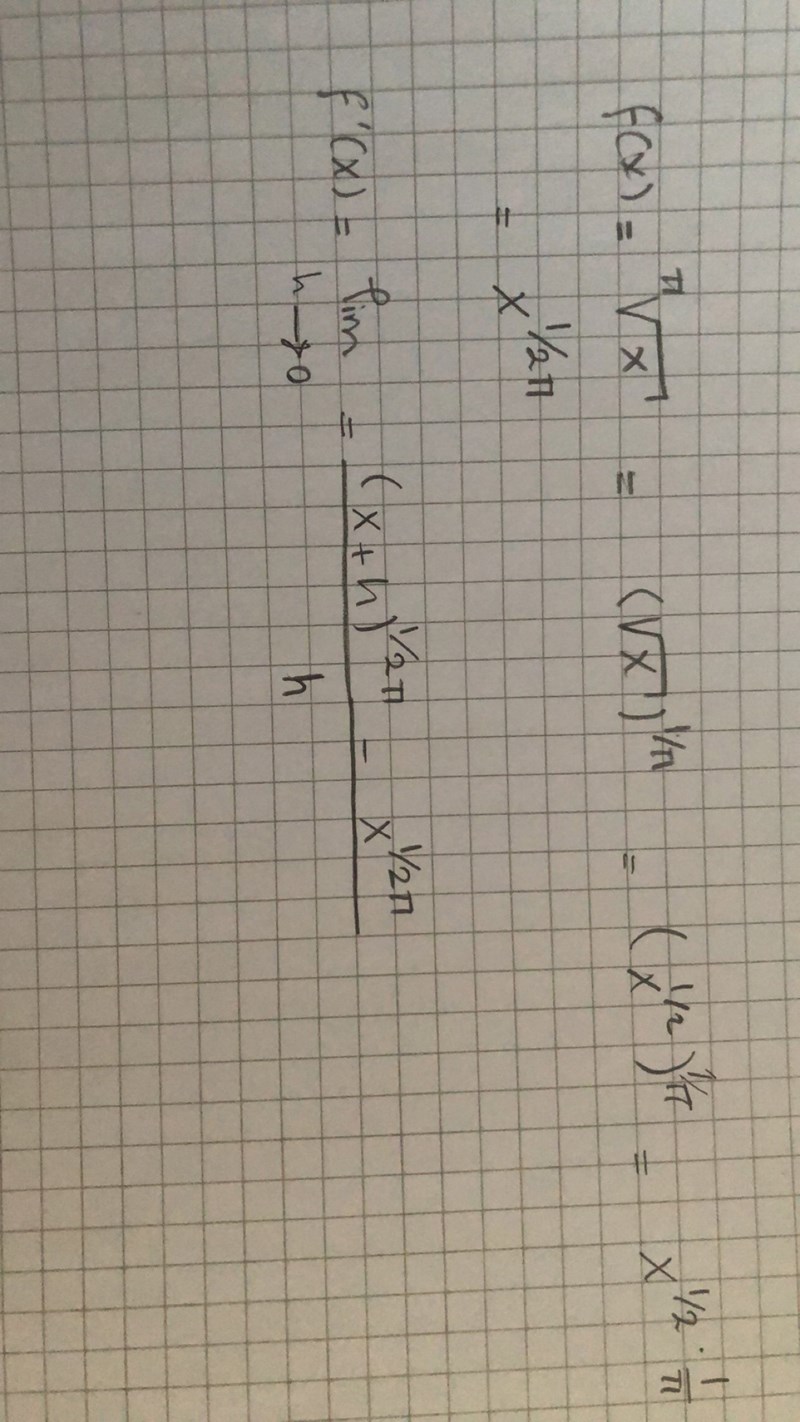 f(x) = π√x = (√x)^1/π = (x^1/2)^1/π = x^1/2 · 1/π
= x^1/2π
f'(x) = lim h→0 = (x+h)^1/2π − x^1/2π / h